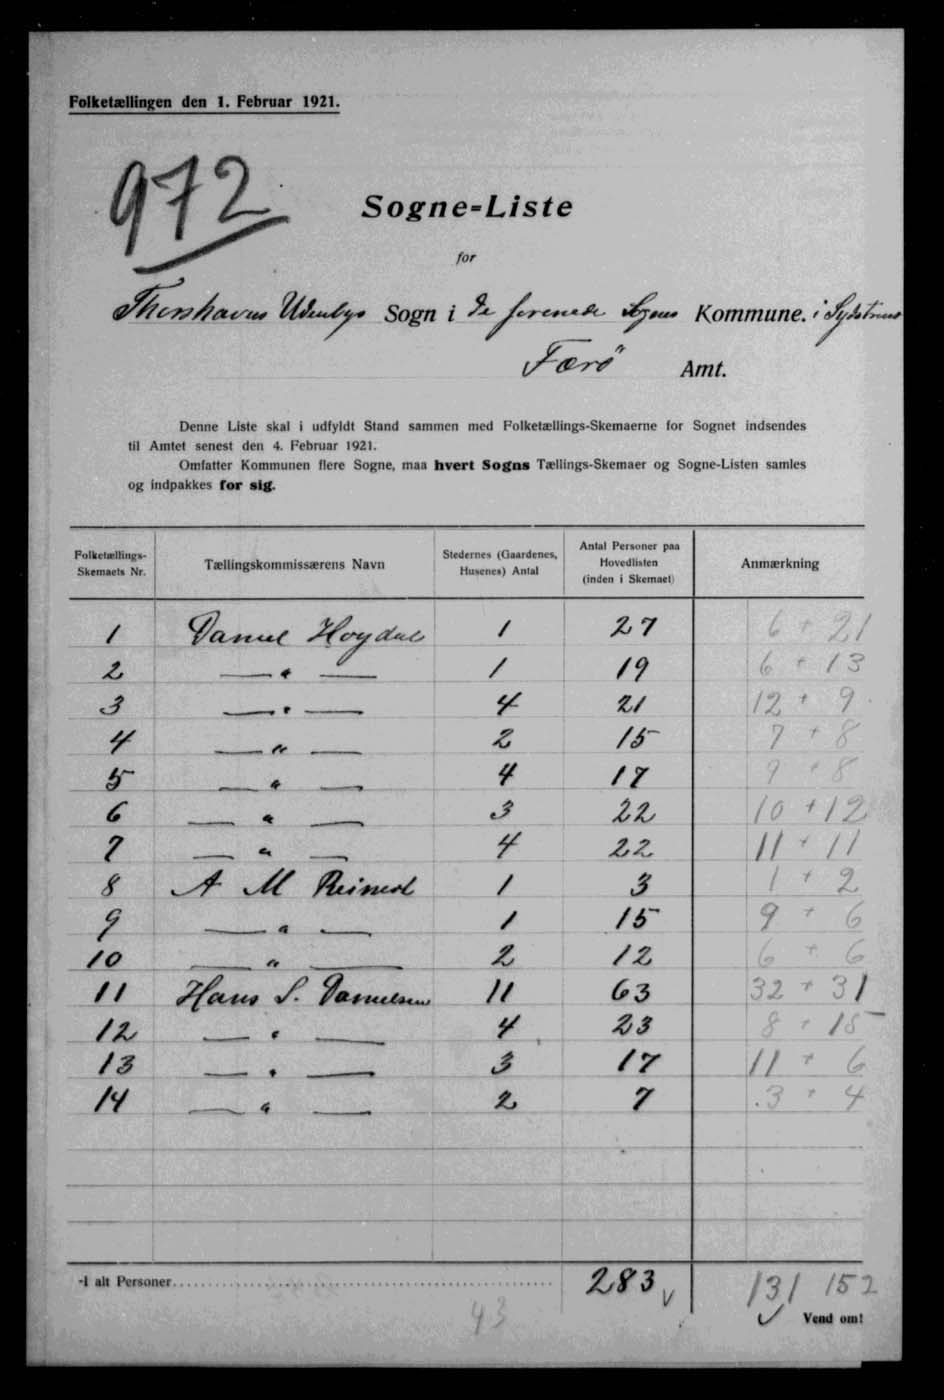 Folketællingen den 1. Februar 1921.
972
Sogne-Liste
for
Thorshavns Udenbys Sogn i de forenede Sognes Kommune. i Sydstrømø
Færö Amt.
Denne Liste skal i udfyldt Stand sammen med Folketællings-Skemaerne for Sognet indsendes
til Amtet senest den 4. Februar 1921.
Omfatter Kommunen flere Sogne, maa hvert Sogns Tællings-Skemaer og Sogne-Listen samles
og indpakkes for sig.
Folketællings-Skemaets Nr. Tællingskommissærens Navn Stedernes (Gaardenes, Husenes) Antal Antal Personer paa Hovedlisten (inden i Skemaet) Anmærkning
1 Daniel Hoydal 1 27 6 + 21
2 — " — 1 19 6 + 13
3 — " — 4 21 12 + 9
4 — " — 2 15 7 + 8
5 — " — 4 17 9 + 8
6 — " — 3 22 10 + 12
7 — " — 4 22 11 + 11
8 A M Reinert 1 3 1 + 2
9 — " — 1 15 9 + 6
10 — " — 2 12 6 + 6
11 Hans S. Danielsen 11 63 32 + 31
12 — " — 4 23 8 + 15
13 — " — 3 17 11 + 6
14 — " — 2 7 3 + 4
I alt Personer 283 131 152
43
Vend om!